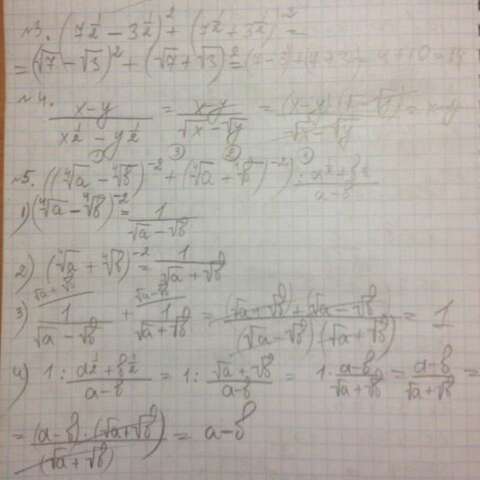 №3. (7^½ − 3^½)² + (7^½ + 3^½)² =
= (√7 − √3)² + (√7 + √3)² = (7−3)+(7+3) = 4+10 = 14
№4. (x−y)/(x^½ − y^½) = (x−y)/(√x − √y) = = x−y
№5. ((⁴√a − ⁴√b)^−2 + (⁴√a + ⁴√b)^−2) : (a^½ + b^½)/(a−b)
1) (⁴√a − ⁴√b)^−2 = 1/(√a − √b)
2) (⁴√a + ⁴√b)^−2 = 1/(√a + √b)
3) 1/(√a − √b) + 1/(√a + √b) = ((√a + √b) + (√a − √b))/((√a − √b)(√a + √b)) = 1
4) 1 : (a^½ + b^½)/(a−b) = 1 : (√a + √b)/(a−b) = 1 · (a−b)/(√a + √b) = (a−b)/(√a + √b) =
= ((a−b) · (√a + √b))/(√a + √b) = a−b